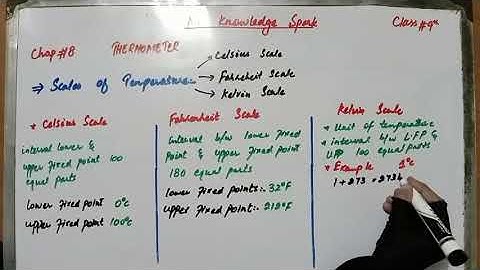 Knowledge Spark
Class#9th
Chap#8 THERMOMETER
⇒ Scales of Temperature
Celsius Scale
Fahrenheit Scale
Kelvin Scale
* Celsius Scale
interval lower &
upper fixed point 100
equal parts
lower fixed point 0°C
upper fixed point 100°C
Fahrenheit Scale
interval b/w lower fixed
Point & upper fixed
180 equal parts
lower fixed points:- 32°F
upper fixed point:- 212°F
Kelvin Scale
* Unit of temperature
* interval b/w L.F.P &
UFP 100 equal parts
* Example 1°C
1 + 273 = 274